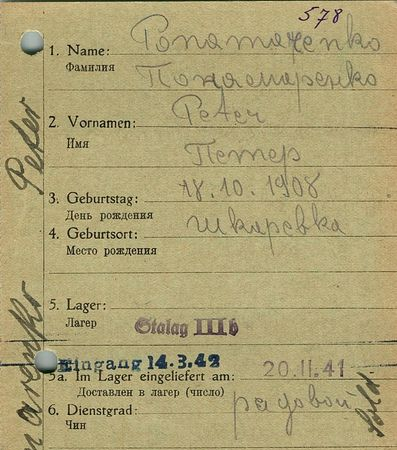 578
1. Name: Ponomarenko
Фамилия Пономаренко
2. Vornamen: Peter
Имя Петер
3. Geburtstag: 18.10.1908
День рождения
4. Geburtsort: Шкаревка
Место рождения
5. Lager:
Лагер Stalag III b
Eingang 14.3.42
5a. Im Lager eingeliefert am: 20.11.41
Доставлен в лагер (число)
6. Dienstgrad: рядовой
Чин
Peter
Sold.